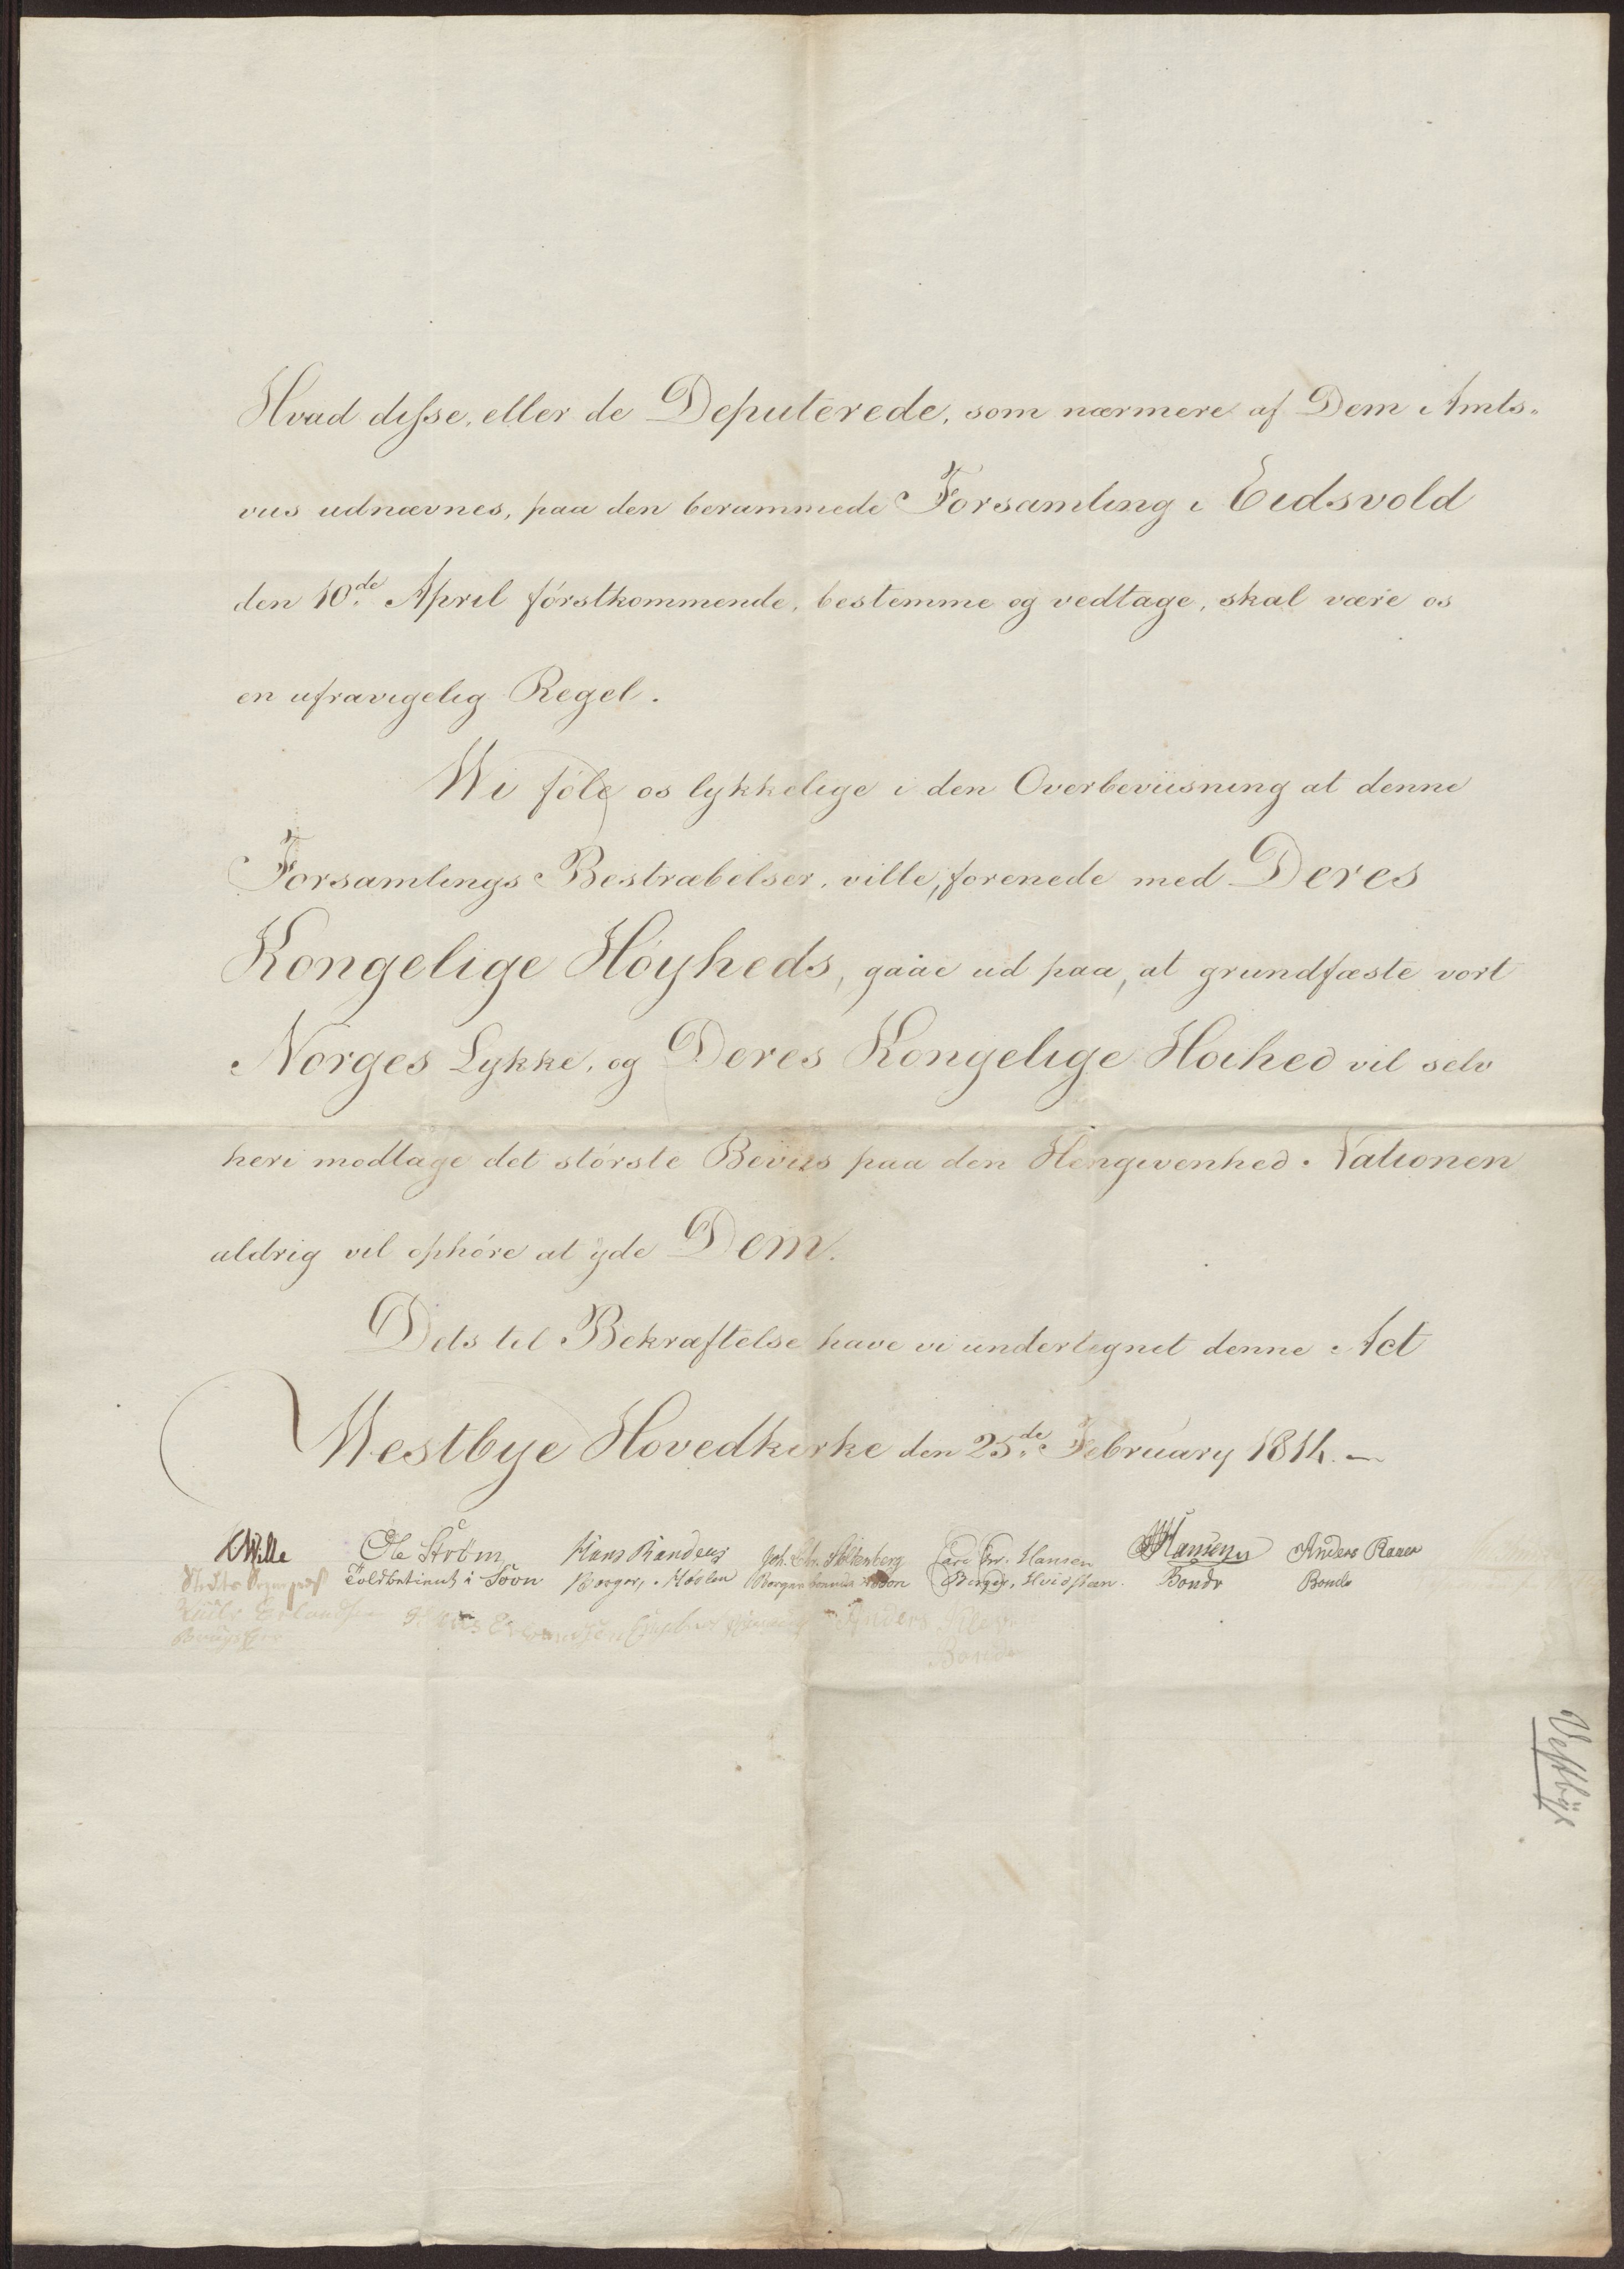 Hvad disse, eller de Deputerede, som nærmere af Dem Amts-
viis udnævnes, paa den berammede Forsamling i Eidsvold
den 10de April førstkommende, bestemme og vedtage, skal være os
en ufravigelig Regel.
Wi føle os lykkelige i den Overbeviisning at denne
Forsamlings Bestræbelser, ville, forenede med Deres
Kongelige Høyheds, gaae ud paa, at grundfæste vort
Norges Lykke, og Deres Kongelige Høihed vil selv
heri modtage det største Beviis paa den Hengivenhed Nationen
aldrig vil ophøre at yde Dem.
Dets til Bekræftelse have vi undertegnet denne Act
Westbye Hovedkirke den 25de February 1814.
Wille Ole Strøm Hans Joh. Chr. Stoltenberg Hansen Hansen Anders
Toldbetient i Soon Borger, Borger Soon Borger, Hvidsteen. Bonde Bonde
Erlandsen Anders
Bonde
Vestbye